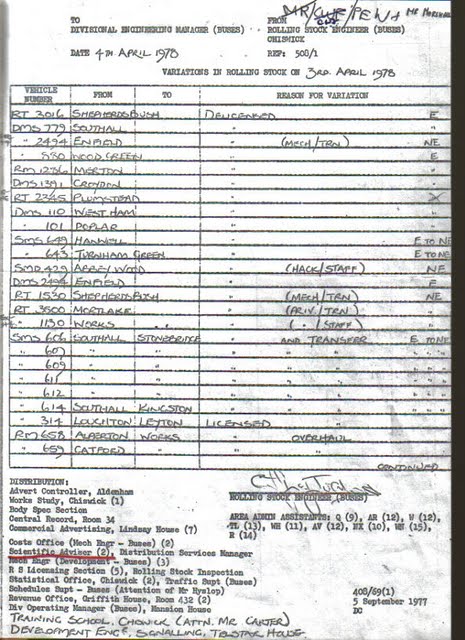 MR/CWF/PEW+ MR MARSHALL
TO FROM
DIVISIONAL ENGINEERING MANAGER (BUSES) ROLLING STOCK ENGINEER (BUSES)
CHISWICK
DATE 4TH APRIL 1978 REF: 508/1
VARIATIONS IN ROLLING STOCK ON 3RD. APRIL 1978
VEHICLE NUMBER FROM TO REASON FOR VARIATION
RT 3016 SHEPHERDS BUSH DELICENSED E
DMS 779 SOUTHALL " "
" 2494 ENFIELD " (MECH/TRN) NE
" 880 WOOD GREEN " E
RM 1236 MERTON " "
DMS 1391 CROYDON " "
RT 2345 PLUMSTEAD "
DMS 110 WEST HAM " "
" 101 POPLAR " "
SMS 649 HANWELL " E TO NE
" 643 TURNHAM GREEN " E TO NE
SMD 429 ABBEY WOOD " (HACK/STAFF) NE
DMS 2494 ENFIELD " E
RT 1530 SHEPHERDS BUSH " (MECH/TRN) NE
RT 3500 MORTLAKE " (PRIV/TRN) "
" 1130 WORKS " ( " /STAFF) "
SMS 606 SOUTHALL STONEBRIDGE " AND TRANSFER E TO NE
" 607 " " " " " " " "
" 609 " " " " " " " "
" 611 " " " " " " " "
" 612 " " " " " " " "
" 614 SOUTHALL KINGSTON " " " " "
" 314 LOUGHTON LEYTON LICENSED
RM 658 ALPERTON WORKS " OVERHAUL
" 659 CATFORD " " "
CONTINUED
DISTRIBUTION:
Advert Controller, Aldenham
Works Study, Chiswick (1)
Body Spec Section
Central Record, Room 34
Commercial Advertising, Lindsay House (7)
Costs Office (Mech Engr - Buses) (2)
Scientific Adviser (2), Distribution Services Manager
Mech Engr (Development - Buses) (3)
R S Licensing Section (5), Rolling Stock Inspection
Statistical Office, Chiswick (2), Traffic Supt (Buses)
Schedules Supt - Buses (Attention of Mr Hyslop)
Revenue Office, Griffith House, Room 432 (2)
Div Operating Manager (Buses), Mansion House
TRAINING SCHOOL, CHISWICK (ATTN. MR. CARTER)
DEVELOPMENT ENGR, SIGNALLING, TELSTAR HOUSE.
ROLLING STOCK ENGINEER (BUSES)
AREA ADMIN ASSISTANTS: Q (9), AR (12), W (12),
TL (13), WH (11), AV (12), NX (10), WN (15),
R (14)
408/69(1)
5 September 1977
DC